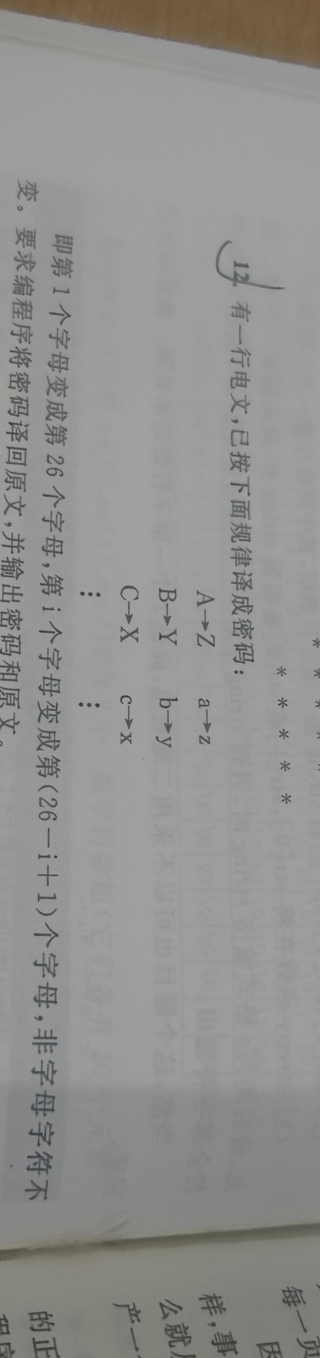 * * * * *
* * * * *
12. 有一行电文,已按下面规律译成密码:
A→Z a→z
B→Y b→y
C→X c→x
⋮ ⋮
即第1个字母变成第26个字母,第i个字母变成第(26-i+1)个字母,非字母字符不
变。要求编程序将密码译回原文,并输出密码和原文。
每一页
因
样,事
么就
产一
的正
程序